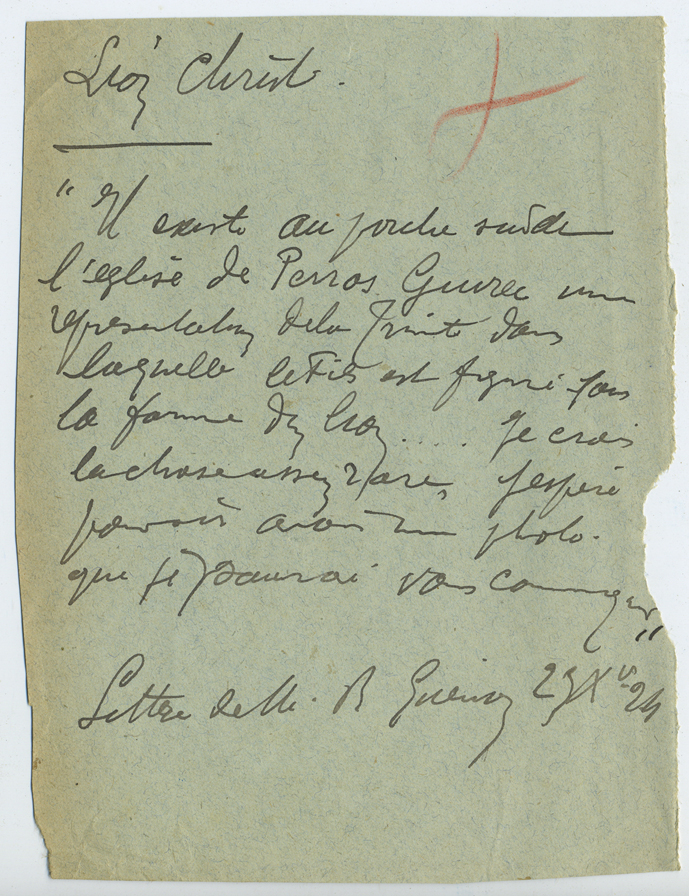 Lion Christ.
"Il existe au porche sud de
l'eglise de Perros Guirec une
representation de la Trinité dans
laquelle le Fils est figuré sous
la forme du lion ..... Je crois
la chose assez rare, j'espère
pouvoir avoir une photo.
que je pourrai vous communiquer"
Lettre de M. R 29 Xbre 24